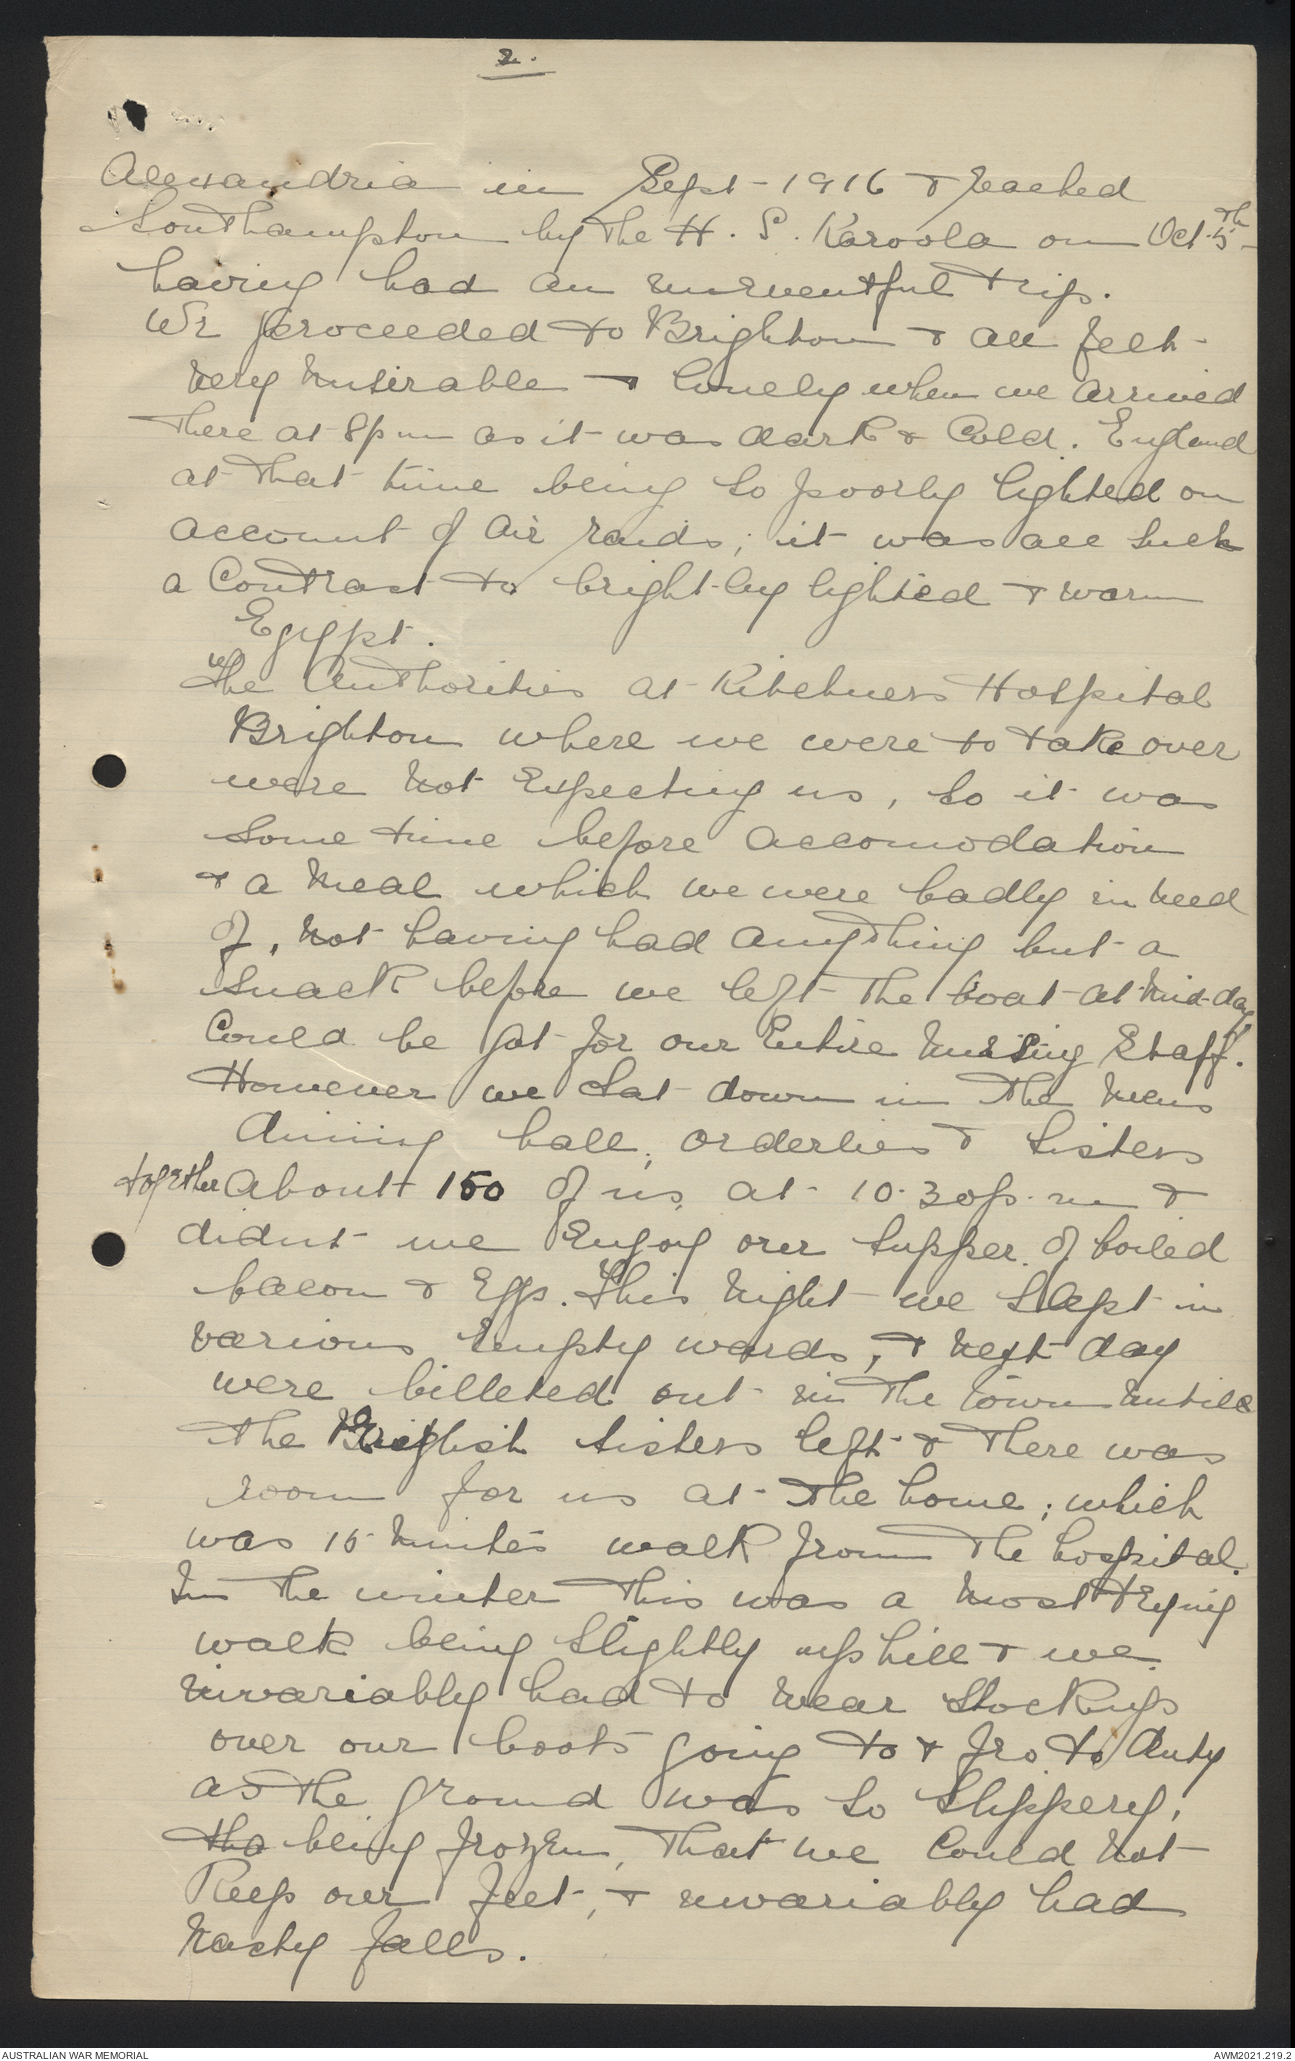 2.
Alexandria in Sept-1916 & reached
Southampton by the H.S. Karoola on Oct. 5th -
having had an uneventful trip.
We proceeded to Brighton & all felt
very miserable & lonely when we arrived
there at 8pm as it was dark & cold. England
at that time being so poorly lighted on
account of air raids; it was all such
a contrast to bright-ly lighted & warm
Egypt.
The Authorities at Kitcheners Hospital
Brighton where we were to take over
were not expecting us, so it was
some time before accomodation
& a meal which we were badly in need
of, not having had anything but a
snack before we left the boat at mid-day,
could be got for our entire nursing staff.
However we sat down in the mens
dining hall, orderlies & sisters
together about 150 of us, at 10.30p.m &
didnt we enjoy our supper of boiled
bacon & eggs. This night we slept in
various empty wards, & next day
were billeted out in the town until
the English sisters left & there was
room for us at the home; which
was 15 minutes walk from the hospital.
In the winter this was a most trying
walk being slightly uphill & we
invariably had to wear stockings
over our boots going to & fro to duty
as the ground was so slippery,
tho being frozen, that we could not
keep our feet, & invariably had
nasty falls.
AUSTRALIAN WAR MEMORIAL
AWM2021.219.2